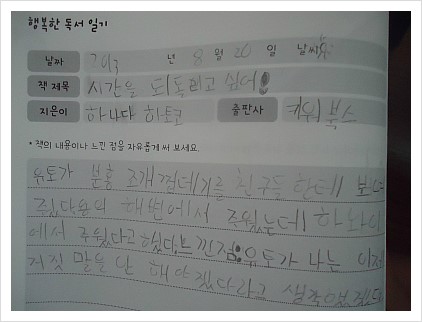 행복한 독서 일기
날짜 2013 년 8 월 20 일 날씨
책 제목 시간을 되돌리고 싶어!
지은이 하나다 하토코 출판사 키위 북스
* 책의 내용이나 느낀 점을 자유롭게 써 보세요.
유토가 분홍 조개껍데기를 친구들 한테 보여
주었다용의 해변에서 주웠는데 하와이
에서 주웠다고했다.느낀점:유토가 나는 이제
거짓 말을 안 해야 겠다라고 생각했겠다